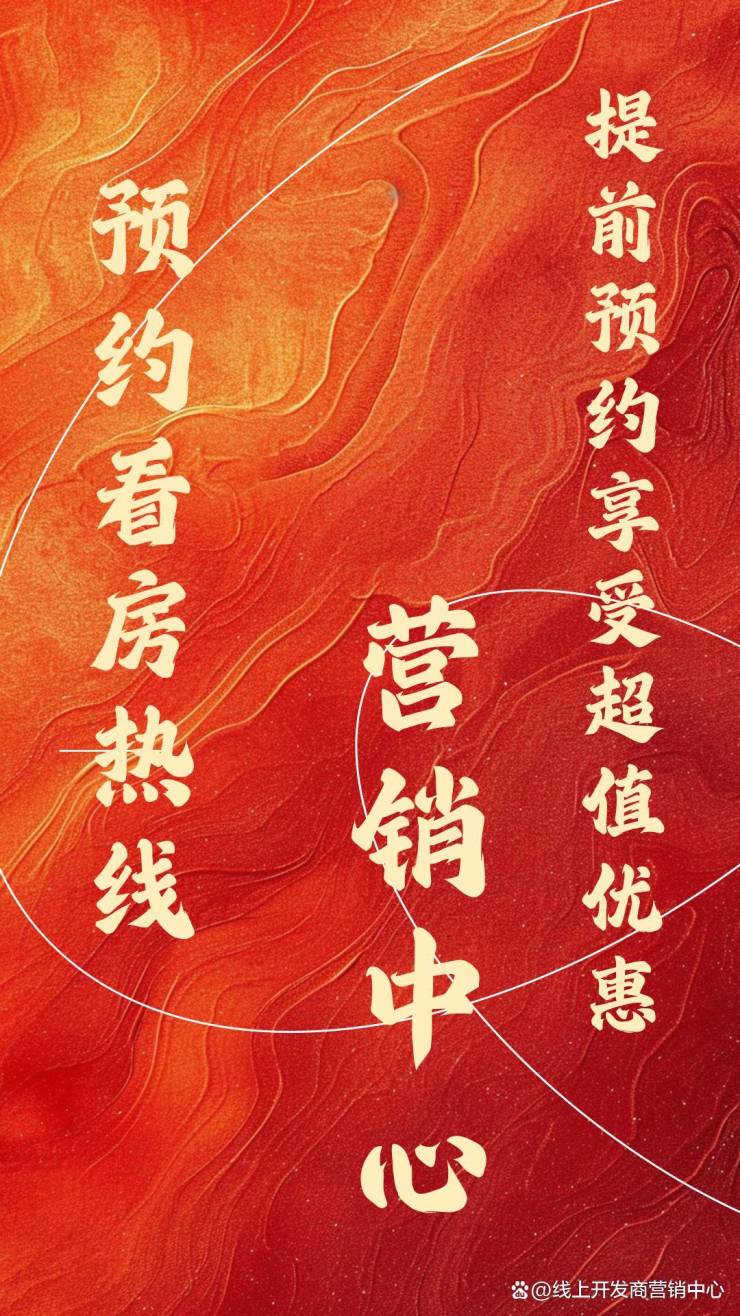 提前预约享受超值优惠
营销中心
预约看房热线
@线上开发商营销中心